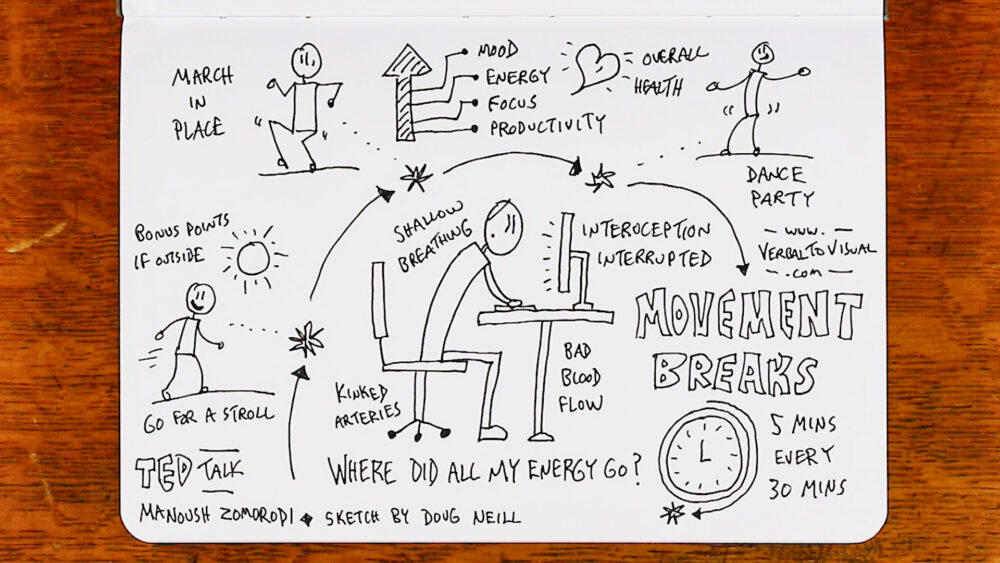 MARCH
IN
PLACE
MOOD
ENERGY
FOCUS
PRODUCTIVITY
OVERALL
HEALTH
DANCE
PARTY
BONUS POINTS
IF OUTSIDE
GO FOR A STROLL
SHALLOW
BREATHING
INTEROCEPTION
INTERRUPTED
KINKED
ARTERIES
BAD
BLOOD
FLOW
WWW.
VERBALTOVISUAL
.COM
MOVEMENT
BREAKS
5 MINS
EVERY
30 MINS
WHERE DID ALL MY ENERGY GO?
TED TALK
MANOUSH ZOMORODI ◆ SKETCH BY DOUG NEILL